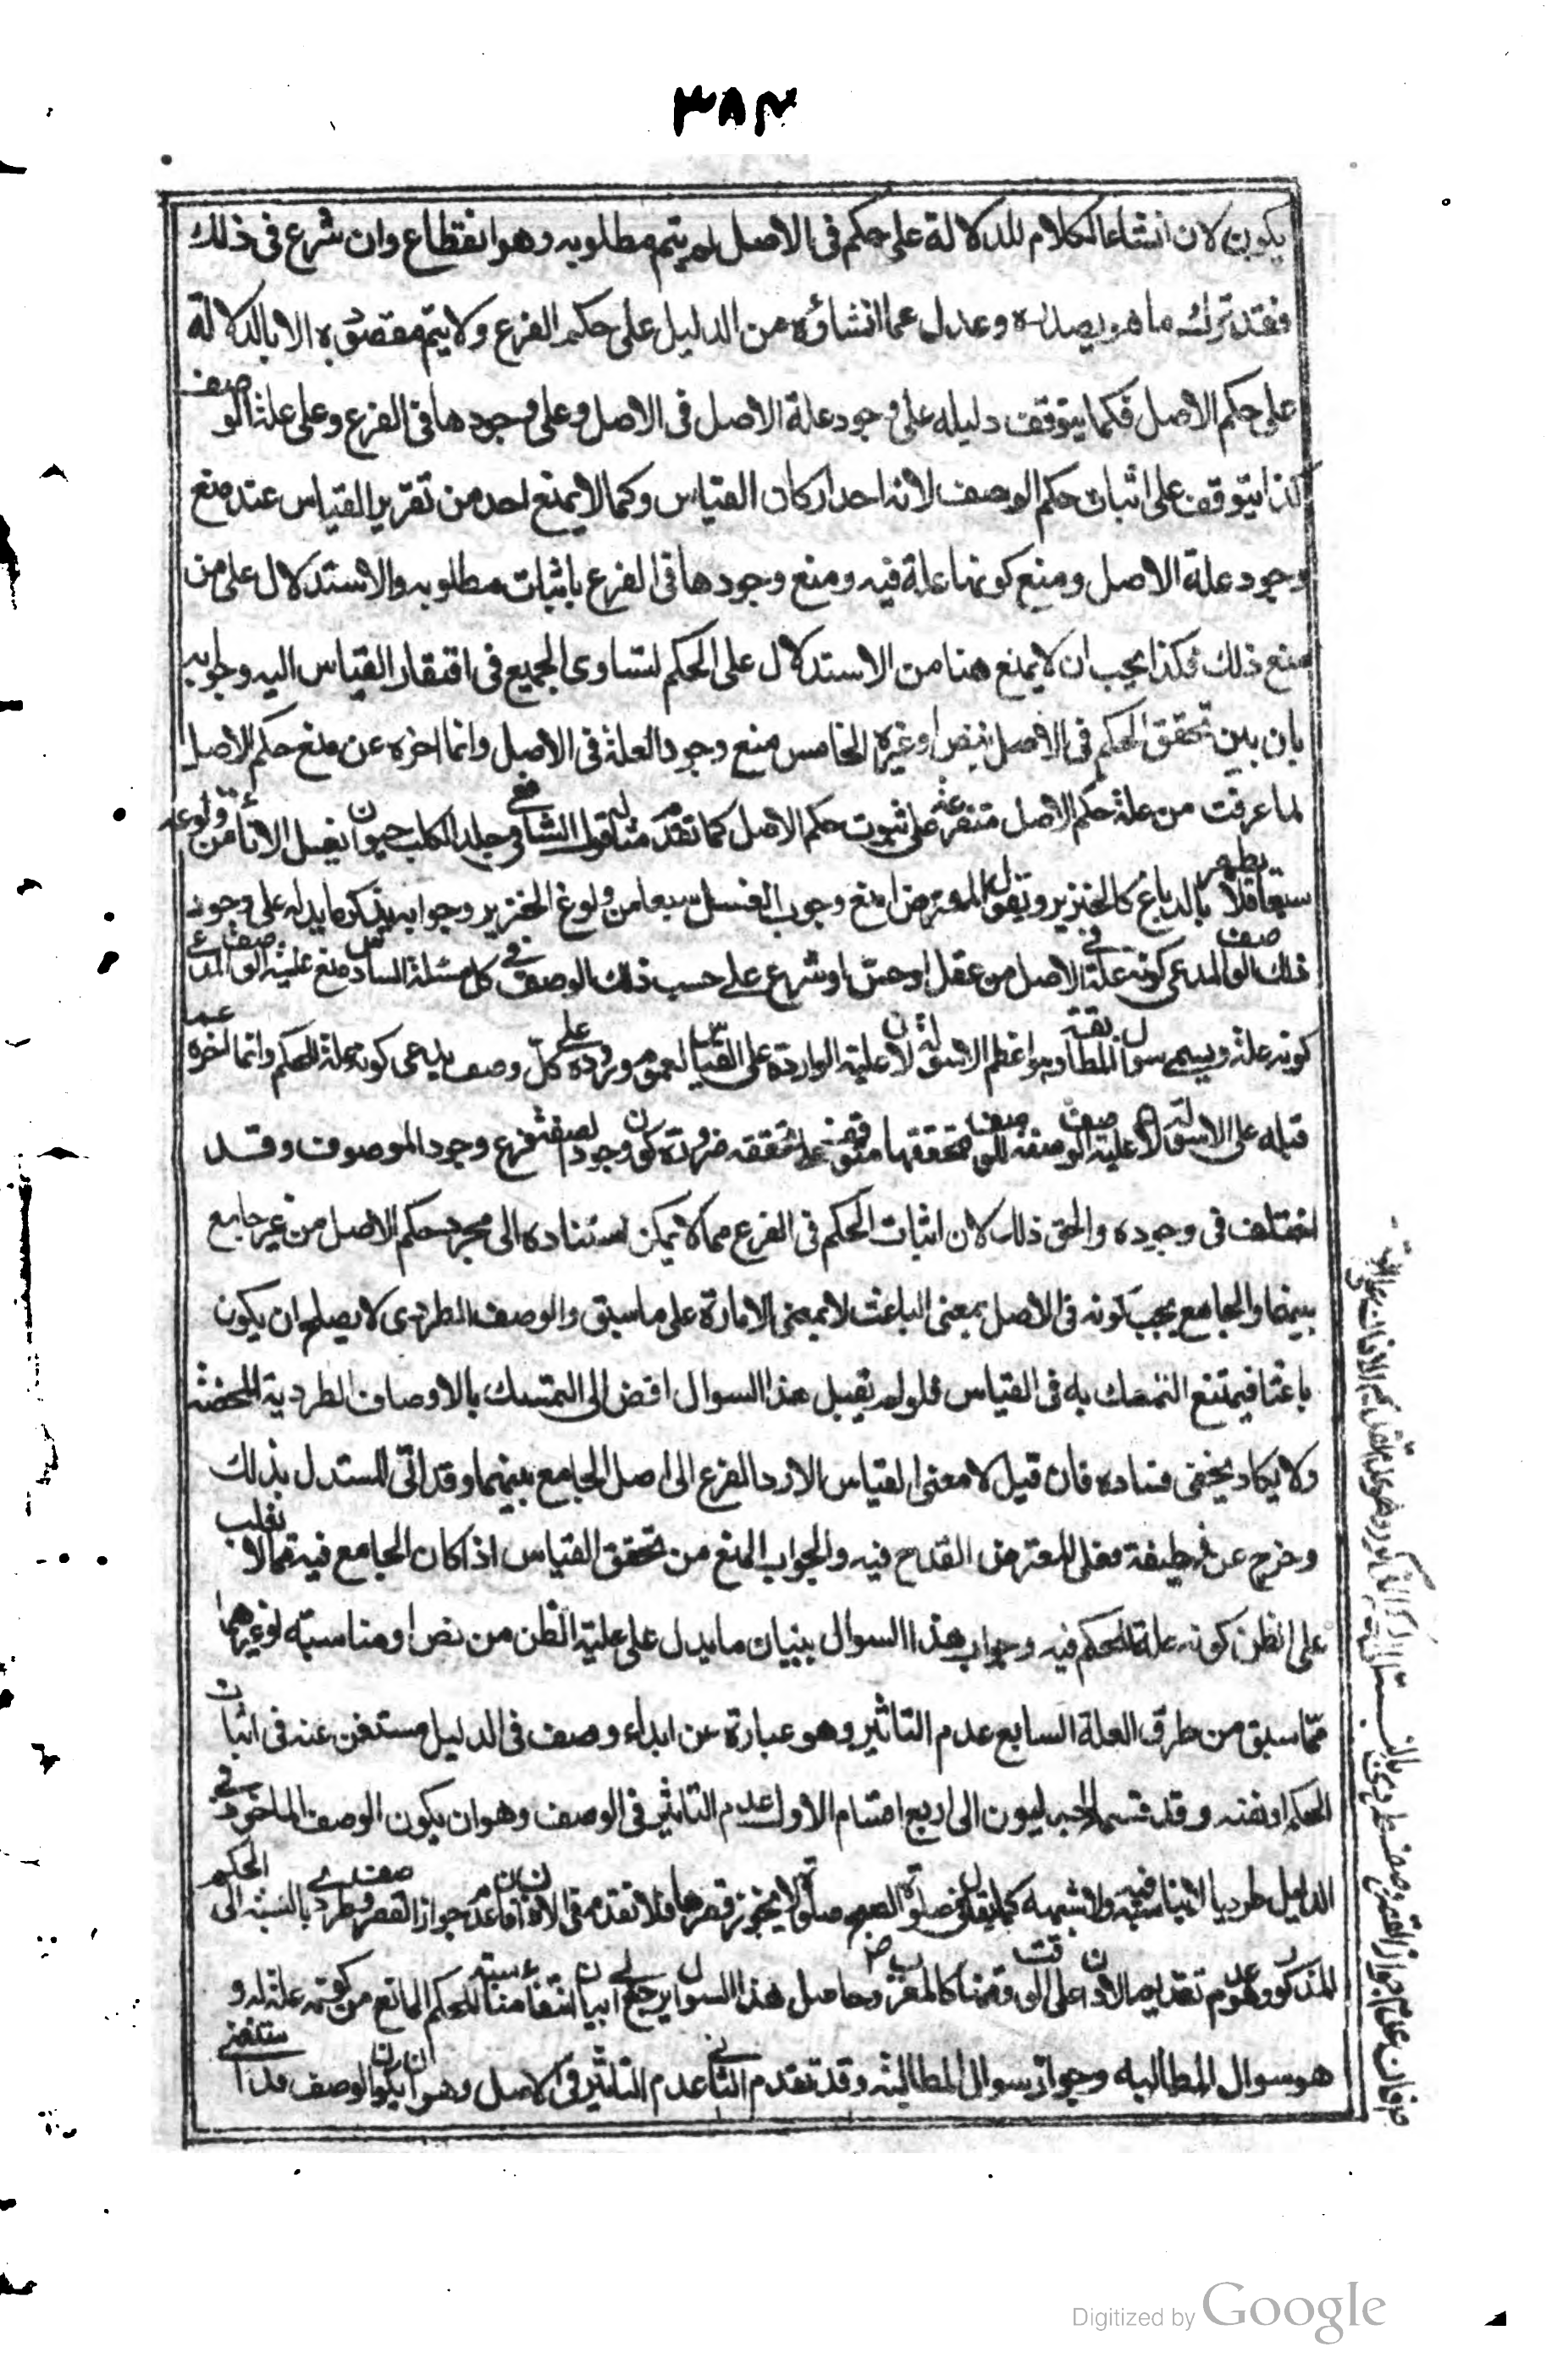 ٣٨٤
يكون لان انشاء الكلام للدلالة على حكم فى الاصل لم يتم مطلوبه وهو انقطاع وان شرع فى ذلك
فقد ترك ما هو بصدده وعدل عما انشاؤه من الدليل على حكم الفرع ولا يتم مقصوده الا بالدلالة
على حكم الاصل فكما يتوقف دليله على وجود علة الاصل فى الاصل وعلى وجودها فى الفرع وعلى علية الوصف
كذا يتوقف على اثبات حكم الوصف لانه احد اركان القياس وكما لا يمنع احد من تقرير القياس عند منع
وجود علة الاصل ومنع كونها علة فيه ومنع وجودها فى الفرع باثبات مطلوبه والاستدلال على من
منع ذلك فكذا يجب ان لا يمنع هنا من الاستدلال على الحكم لتساوى الجميع فى افتقار القياس اليه وجوابه
بان بين تحقق الحكم فى الاصل بنص او غيره الخامس منع وجود العلة فى الاصل وانما اخره عن منع حكم الاصل
لما عرفت من علة حكم الاصل متفرعة على ثبوت حكم الاصل كما تقدم مثاله قول الشافعى فى جلد الكلب حيوان يغسل الاناء من ولوغه
سبعا فلا يطهر بالدباغ كالخنزير ويقول المعترض امنع وجوب الغسل سبعا من ولوغ الخنزير وجوابه بذكر ما يدل على وجود
ذلك الوصف المدعى كونه علة فى الاصل من عقل او حس او شرع على حسب ذلك الوصف فى كل مسئلة السادس منع علية الوصف المدعى
كونه علة ويسمى سوال المطالبة وهو اعظم الاسولة لان علية الواردة على القياس لعموم وروده على كل وصف يدعى كونه علة للحكم وانما اخره
قبله على الاسولة لان علية الوصف صفة للوصف فتحققها متوقف على تحققه ضرورة كون وجود الصفة فرع وجود الموصوف وقد
اختلف فى وجوده والحق ذلك لان اثبات الحكم فى الفرع مما لا يمكن استناده الى مجرد حكم الاصل من غير جامع
بينهما والجامع يجب كونه فى الاصل بمعنى الباعث لا بمعنى الامارة على ما سبق والوصف الطردى لا يصلح ان يكون
باعثا فيمتنع التمسك به فى القياس فلو لم يقبل هذا السوال افض الى التمسك بالاوصاف الطردية المحضة
ولا يكاد يخفى فساده فان قيل لا معنى القياس الا رد الفرع الى اصل الجامع بينهما وقد اتى المستدل بذلك
وخرج عن وظيفة فعلى المعترض القدح فيه والجواب المنع من تحقق القياس اذا كان الجامع فيه مما لا يغلب
على الظن كونه علة للحكم فيه وجواب هذا السوال ببيان ما يدل على علية الظن من نص او مناسبة او غيرهما
مما سبق من طرق العلة السابع عدم التاثير وهو عبارة عن ابداء وصف فى الدليل مستغن عنه فى اثبات
الحكم او نفيه وقد قسمه الجدليون الى اربع اقسام الاول عدم التاثير فى الوصف وهو ان يكون الوصف الماخوذ فى
الدليل طرديا لا مناسبة فيه ولا شبهه كما يقول فى صلوة الصبح صلوة لا يجوز قصرها فلا تقدم فى الاذان فان عدم جواز القصر وصف طردى بالنسبة الى الحكم
المذكور وهو عدم تقديم الاذان على الوقت كالمغرب وحاصل هذا السوال يرجع الى بيان انتفاء مناسبته للحكم المانع من كونه علة له و
هو سوال المطالبه وجوابه سوال المطالبة وقد تقدم الثانى عدم التاثير فى الاصل وهو ان يكون الوصف قد استغنى